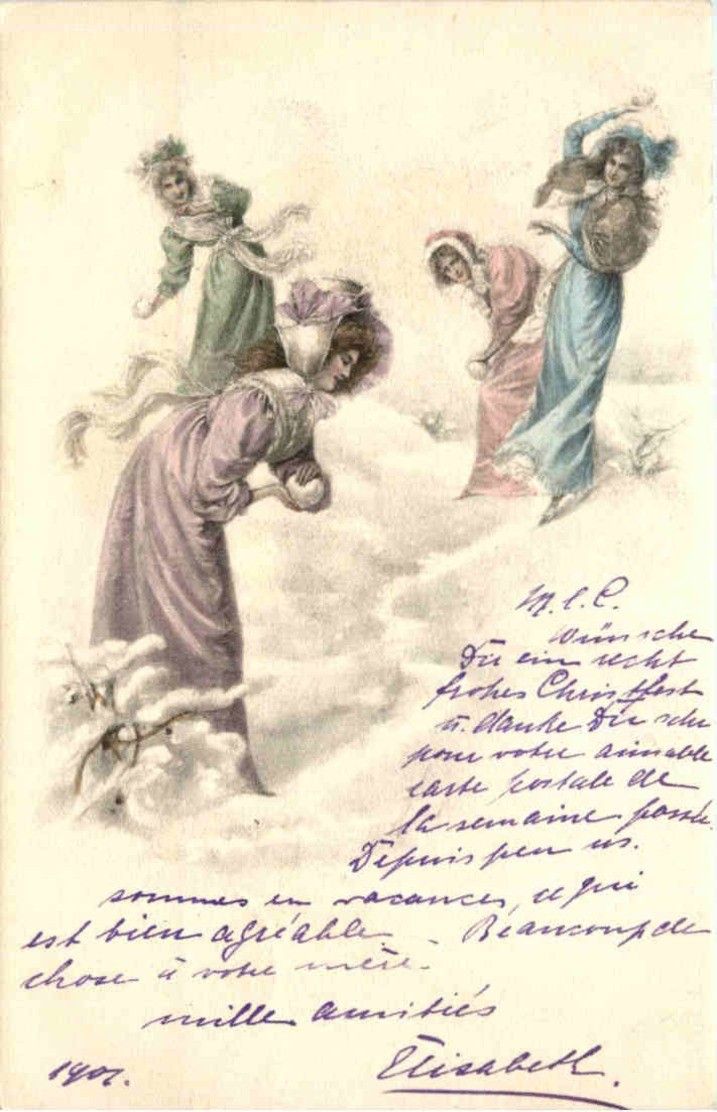 M. l. C.
Wünsche
Dir ein recht
frohes Christfest
u. danke Dir sehr
pour votre aimable
carte postale de
la semaine passée.
Depuis peu ns.
sommes en vacances, ce qui
est bien agréable. Beaucoup de
chose à votre mère.
mille amitiés
1901. Elisabeth.